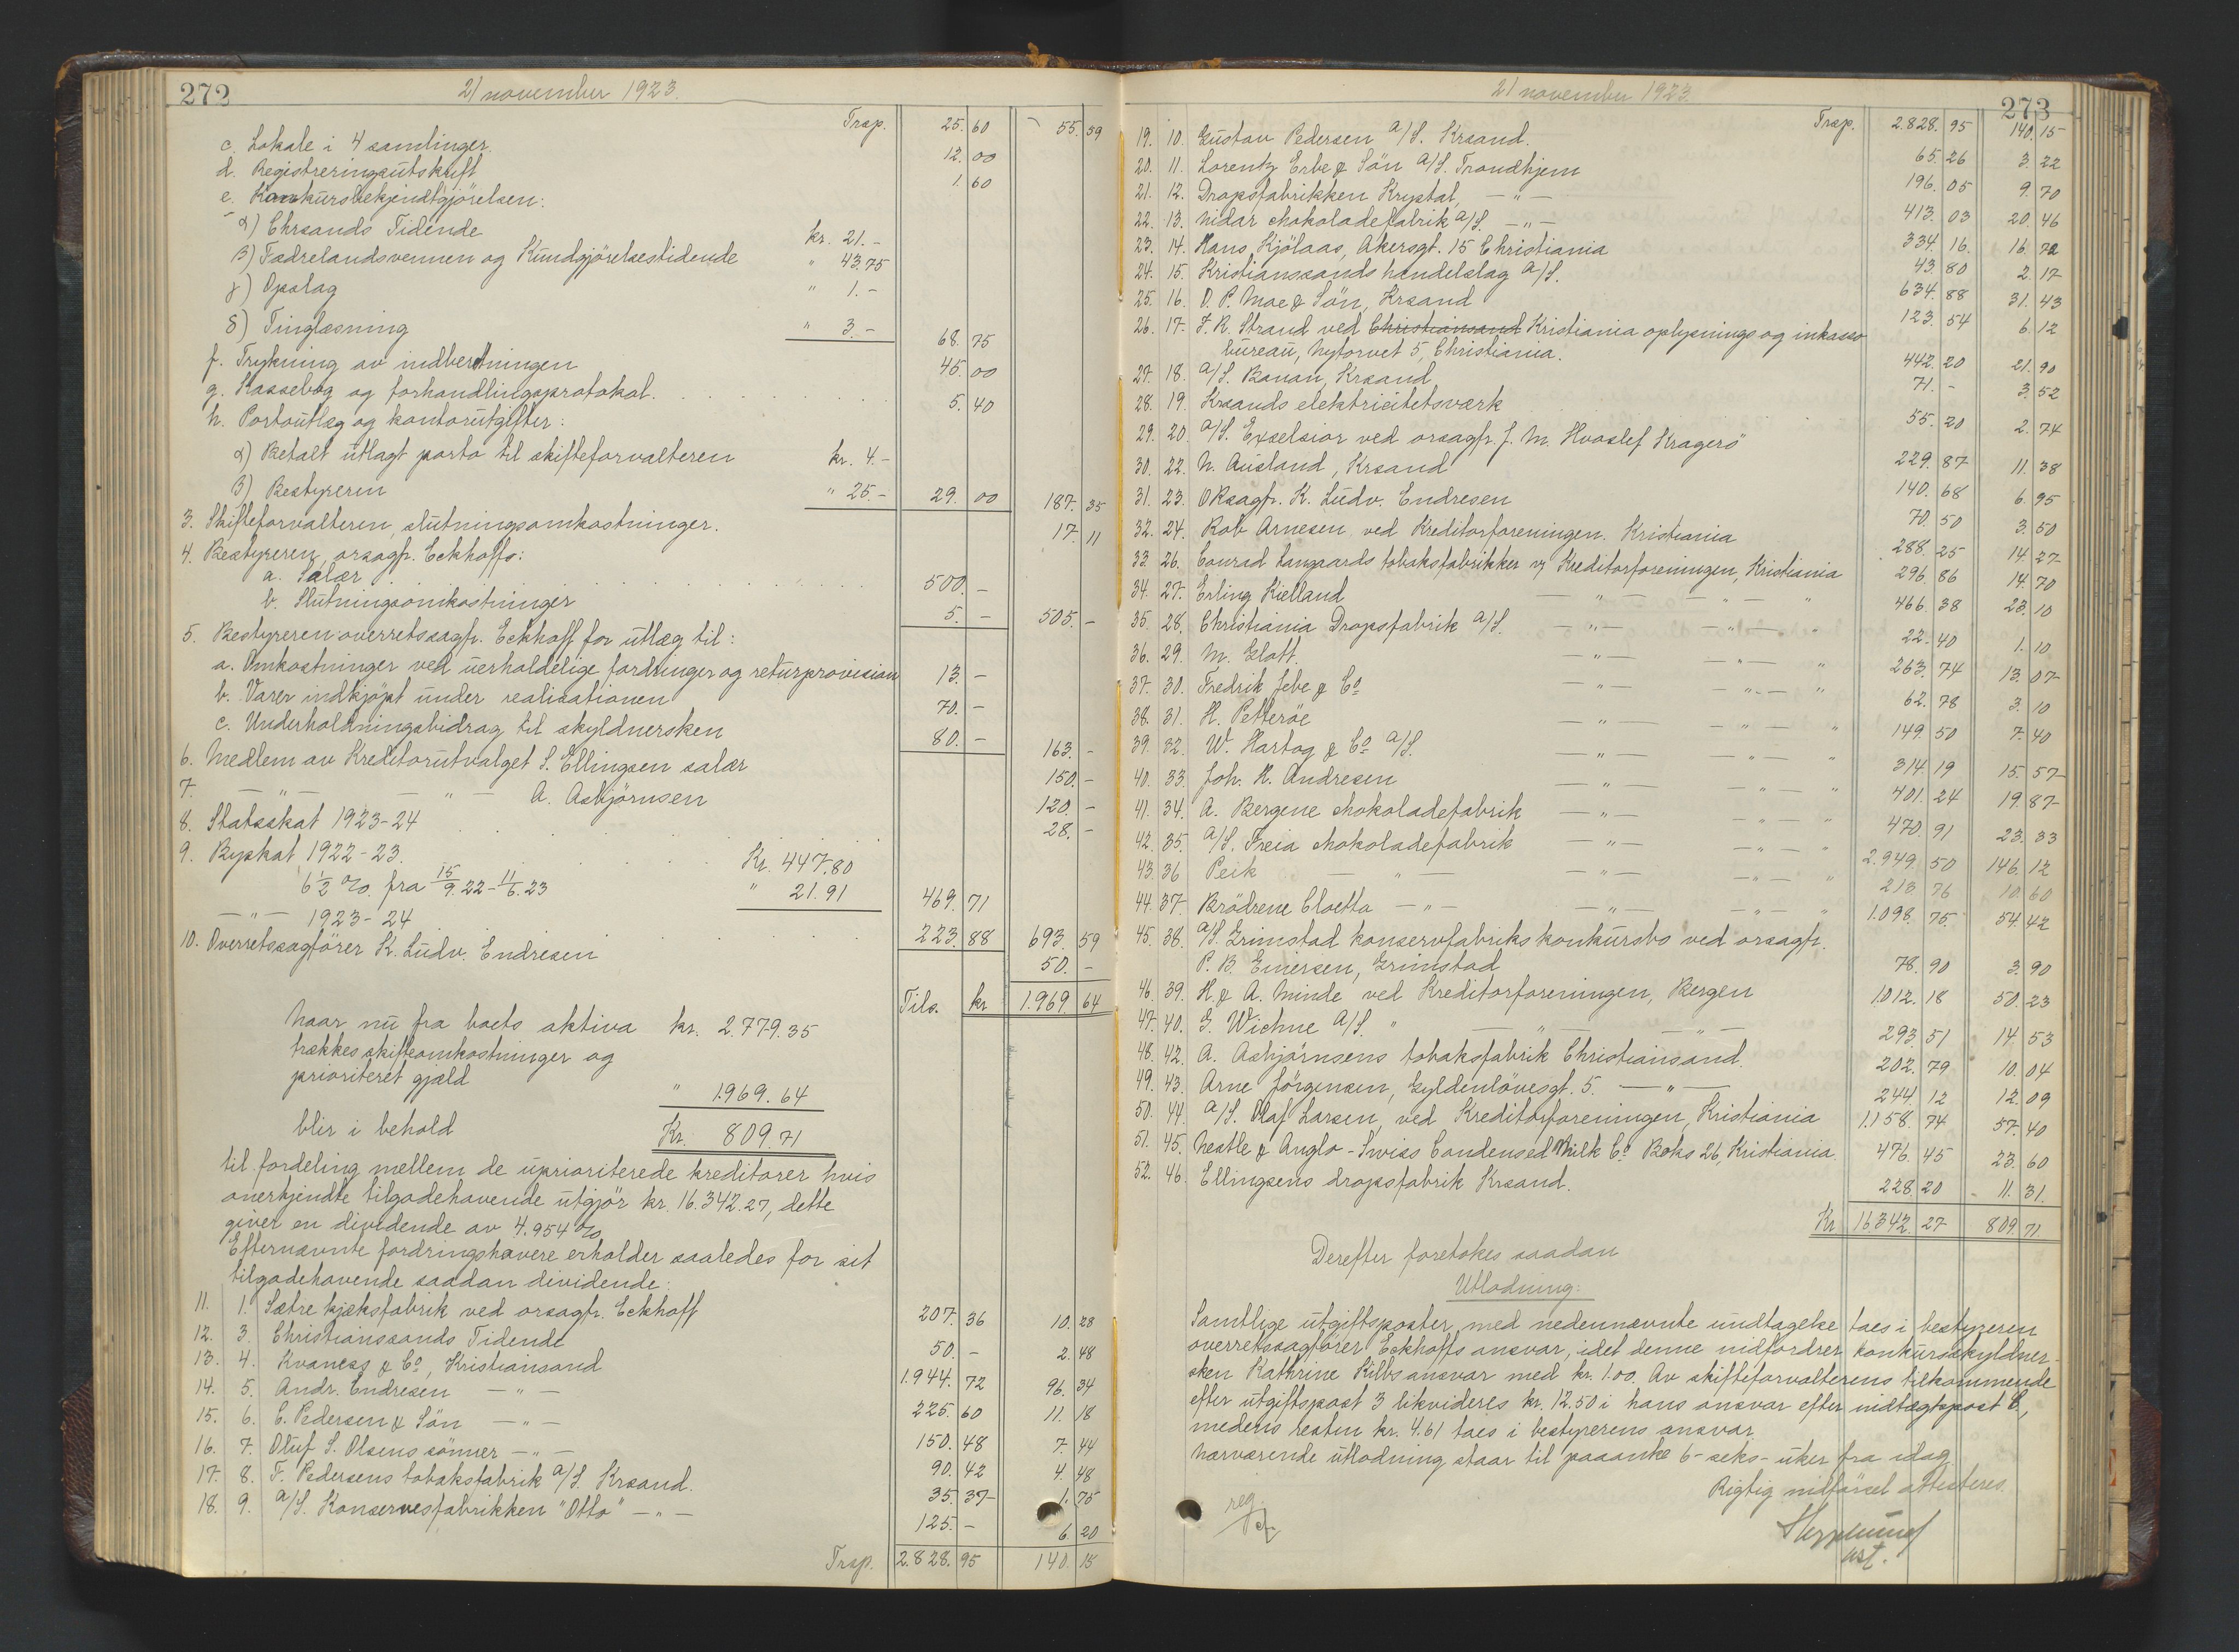 272
21 november 1923.
Trsp. 25.60 55.59
c. Lokale i 4 samlinger. 12.00
d. Registreringsutskrift 1.60
e. Konkursbekjendtgjörelsen:
α) Chrsands Tidende kr. 21.-
β) Fædrelandsvennen og Kundgjörelsestidende " 43.75
γ) Opslag " 1.-
δ) Tinglæsning " 3.- 68.75
f. Trykning av indberetningen 45.00
g. Kassebog og forhandlingsprotokol. 5.40
h. Portoutlæg og kontorutgifter:
α) Betalt utlagt porto til skifteforvalteren kr. 4.-
β) Bestyreren " 25.- 29.00 187.35
3. Skifteforvalteren, slutningsomkostninger. 17.11
4. Bestyreren, orsagfr. Eckhoffs:
a. Salær 500.-
b. Slutningsomkostninger 5.- 505.-
5. Bestyreren overretssagfr. Eckhoff for utlæg til:
a. Omkostninger ved uerholdelige fordringer og returprovision 13.-
b. Varer indkjöpt under realisationen 70.-
c. Underholdningsbidrag til skyldnersken 80.- 163.-
6. Medlem av Kreditorutvalget S. Ellingsen salær 150.-
7. —"— —"— A. Asbjörnsen 120.-
8. Statsskat 1923-24 28.-
9. Byskat 1922-23. Kr. 447.80
6½ % fra 15/9.22 - 11/6.23 " 21.91 469.71
—"— 1923-24 223.88 693.59
10. Overretssagförer K. Ludv. Endresen 50.-
Tils. kr 1.969.64
Naar nu fra boets aktiva kr. 2.779.35
trækkes skifteomkostninger og
prioriteret gjæld " 1.969.64
blir i behold Kr. 809.71
til fordeling mellem de uprioriterede kreditorer hvis
anerkjendte tilgodehavende utgjör kr. 16.342.27, dette
giver en dividende av 4.954 %
Efternævnte fordringshavere erholder saaledes for sit
tilgodehavende saadan dividende:
11. 1. Sætre kjæksfabrik ved orsagfr. Eckhoff 207.36 10.28
12. 3. Christianssands Tidende 50.- 2.48
13. 4. Kvaness & Co, Kristiansand 1.944.72 96.34
14. 5. Andr. Endresen —"— 225.60 11.18
15. 6. C. Pedersen & Sön —"— 150.48 7.44
16. 7. Oluf S. Olsens sönner —"— 90.42 4.48
17. 8. F. Pedersens tobaksfabrik A/S. Krsand. 35.37 1.75
18. 9. A/S. Konservesfabrikken "Otto" —"— 125.- 6.20
Trsp. 2.828.95 140.15
273
21 november 1923.
Trsp. 2.828.95 140.15
19. 10. Gustav Pedersen A/S. Krsand. 65.26 3.22
20. 11. Lorentz Erbe & Sön A/S. Trondhjem 196.05 9.70
21. 12. Dropsfabrikken Krystal, —"— 413.03 20.46
22. 13. Nidar chokoladefabrik A/S. —"— 334.16. 16.72
23. 14. Hans Kjölaas, Akersgt. 15 Christiania 43.80 2.17
24. 15. Kristianssands handelslag A/S. 634.88 31.43
25. 16. O. P. Moe & Sön, Krsand 123.54 6.12
26. 17. J. R. Strand ved Christiansand Kristiania oplysnings og inkasso
bureau, Nytorvet 5, Christiania. 442.20 21.90
27. 18. A/S. Banan, Krsand 71.- 3.52
28. 19. Krsands elektricitetsværk 55.20 2.74
29. 20. A/S. Exselsior ved orsagfr. J. M. Hvoslef Kragerö 229.87 11.38
30. 22. N. Ausland, Krsand 140.68 6.95
31. 23. ORsagfr. K. Ludv. Endresen 70.50 3.50
32. 24. Rob Arnesen ved Kreditorforeningen. Kristiania 288.25 14.27
33. 26. Conrad Langaards tobaksfabrikker v/ Kreditorforeningen, Kristiania 296.86 14.70
34. 27. Erling Kielland —"— —"— " 466.38 23.10
35. 28. Christiania Dropsfabrik A/S. —"— —"— " 22.40 1.10
36. 29. M. Glott. —"— —"— " 263.74 13.07
37. 30. Fredrik Jebe & Co —"— —"— " 62.78 3.10
38. 31. H. Petteröe —"— —"— " 149.50 7.40
39. 32. W. Hartog & Co A/S. —"— —"— " 314.19 15.57
40. 33. Joh. H. Andresen —"— —"— " 401.24 19.87
41. 34. A. Bergene chokoladefabrik —"— —"— " 470.91 23.33
42. 35. A/S. Freia chokoladefabrik —"— —"— " 2.949.50 146.12
43. 36 Peik —"— —"— —"— " 213.76 10.60
44. 37. Brödrene Cloetta —"— —"— —"— " 1.098.75. 54.42
45. 38. A/S. Grimstad konservfabriks konkursbo ved orsagfr.
P. B. Einersen, Grimstad 78.90 3.90
46. 39. H. & A. Minde ved Kreditorforeningen, Bergen 1.012.18 50.23
47. 40. G. Wichne A/S. " —"— —"— 293.51 14.53
48. 42. A. Asbjörnsens tobaksfabrik Christiansand. 202.79 10.04
49. 43. Arne Jörgensen, Gyldenlövesgt. 5. —"— 244.12 12.09
50. 44. A/S. Olaf Larsen, ved Kreditorforeningen, Kristiania 1.158.74 57.40
51. 45. Nestle & Anglo-Swiss Condensed Milk Co. Boks 26, Kristiania. 476.45 23.60
52. 46. Ellingsens dropsfabrik Krsand. 228.20 11.31.
Kr 16.342.27 809.71
Derefter foretokes saadan
Utlodning:
Samtlige utgiftsposter, med nedennævnte undtagelse taes i bestyreren
overretssagförer Eckhoffs ansvar, idet denne nidfordrer konkursskyldner-
sken Kathrine Kilbs ansvar med kr. 1.00. Av skifteforvalterens tilkommende
efter utgiftspost 3 likvideres kr. 12.50 i hans ansvar efter indtægtspost 8,
medens resten kr. 4.61 taes i bestyrerens ansvar.
Nærværende utlodning staar til paaanke 6-seks-uker fra idag.
Rigtig nidförsel attesteres.
reg.
ast.